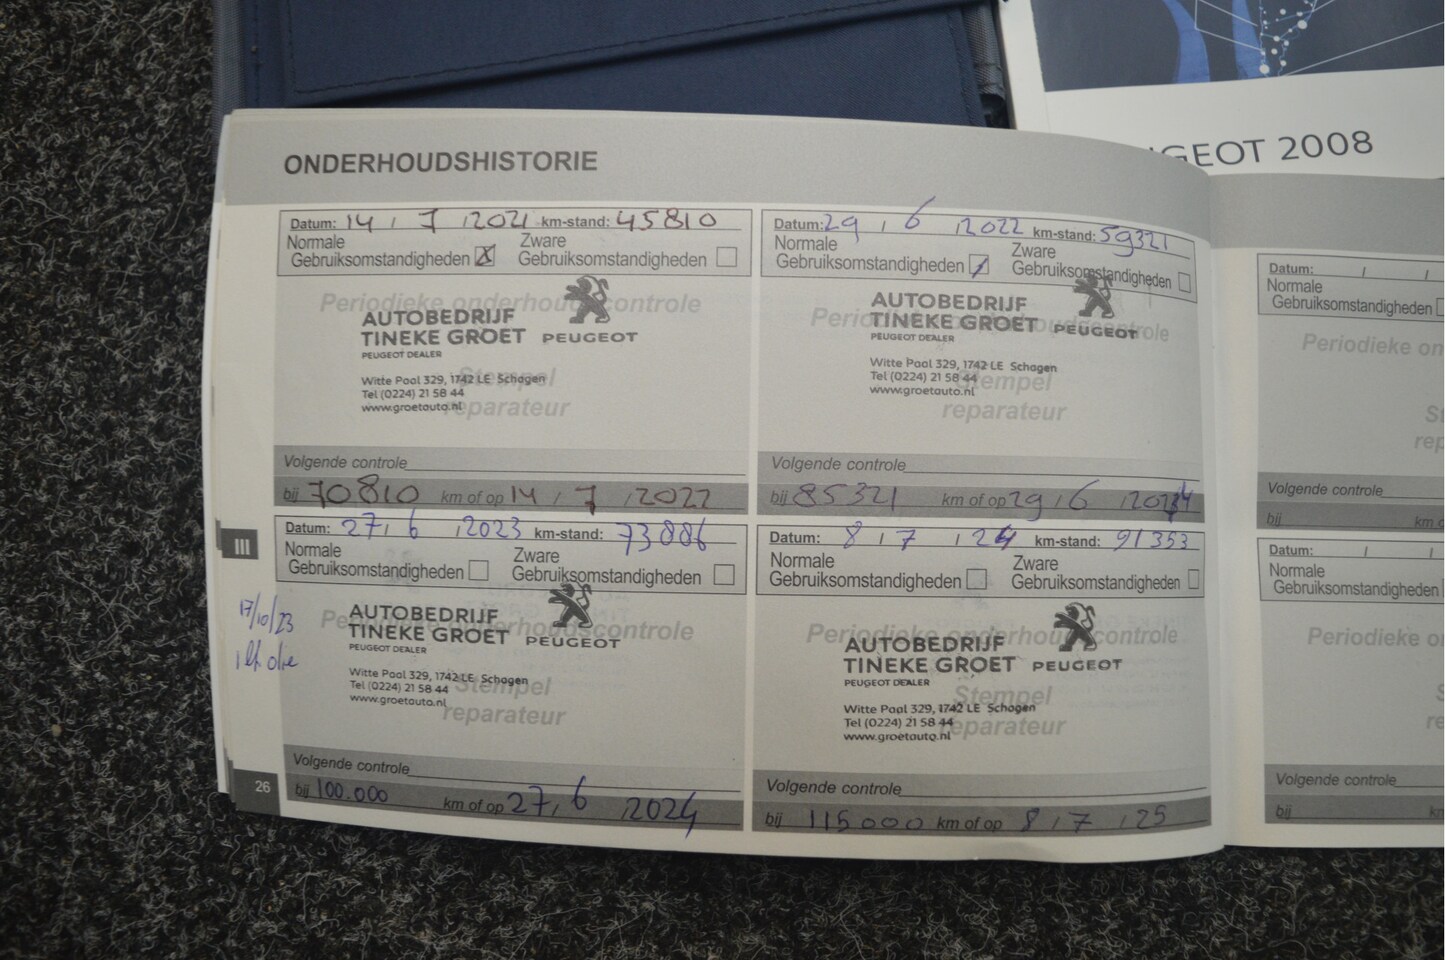 GEOT 2008
ONDERHOUDSHISTORIE
Datum: 14 / 7 / 2021 km-stand: 45810
Normale Gebruiksomstandigheden X Zware Gebruiksomstandigheden
Periodieke onderhoudscontrole
AUTOBEDRIJF
TINEKE GROET PEUGEOT
PEUGEOT DEALER
Witte Paal 329, 1742 LE Schagen
Tel (0224) 21 58 44
www.groetauto.nl
Stempel
reparateur
Volgende controle
bij 70810 km of op 14 / 7 / 2022
Datum: 29 / 6 / 2022 km-stand: 59321
Normale Gebruiksomstandigheden / Zware Gebruiksomstandigheden
Periodieke onderhoudscontrole
AUTOBEDRIJF
TINEKE GROET PEUGEOT
PEUGEOT DEALER
Witte Paal 329, 1742 LE Schagen
Tel (0224) 21 58 44
www.groetauto.nl
Stempel
reparateur
Volgende controle
bij 85321 km of op 29 / 6 /
III
17/10/23
1 lt olie
Datum: 27 / 6 / 2023 km-stand: 73886
Normale Gebruiksomstandigheden Zware Gebruiksomstandigheden
Periodieke onderhoudscontrole
AUTOBEDRIJF
TINEKE GROET PEUGEOT
PEUGEOT DEALER
Witte Paal 329, 1742 LE Schagen
Tel (0224) 21 58 44
www.groetauto.nl
Stempel
reparateur
Volgende controle
bij 100.000 km of op 27 / 6 / 2024
26
Datum: 8 / 7 / 24 km-stand: 91353
Normale Gebruiksomstandigheden Zware Gebruiksomstandigheden
Periodieke onderhoudscontrole
AUTOBEDRIJF
TINEKE GROET PEUGEOT
PEUGEOT DEALER
Witte Paal 329, 1742 LE Schagen
Tel (0224) 21 58 44
www.groetauto.nl
Stempel
reparateur
Volgende controle
bij 115000 km of op 8 / 7 / 25
Datum: / /
Normale
Gebruiksomstandigheden
Periodieke on
St
rep
Volgende controle
bij km o
Datum: / /
Normale
Gebruiksomstandigheden
Periodieke o
S
re
Volgende controle
bij km